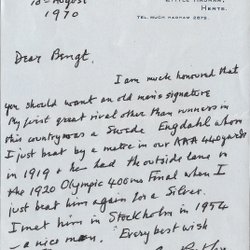 LITTLE HADHAM,
HERTS.
TEL. MUCH HADHAM 2875.
August
1970
Dear Bengt.
I am much honoured that
you should want an old man's signature
My first great rival other than runners in
this country was a Swede Engdahl whom
I just beat by a metre in our AAA 440 yards
in 1919 & he had the outside lane in
the 1920 Olympic 400ms Final when I
just beat him again for a Silver.
I met him in Stockholm in 1954
- a nice man. Every best wish